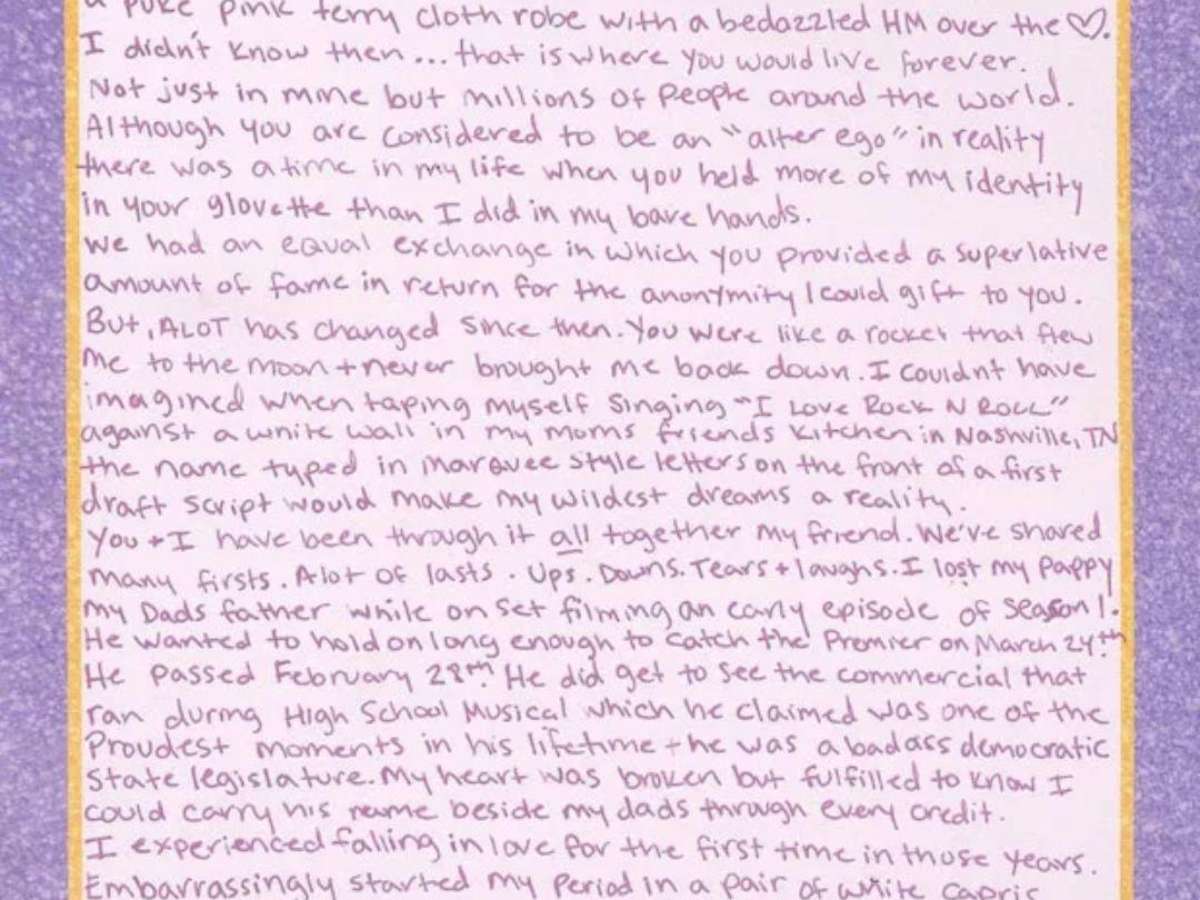 a puke pink terry cloth robe with a bedazzled HM over the ♡.
I didn't know then...that is where you would live forever.
Not just in mine but millions of people around the world.
Although you are considered to be an "alter ego" in reality
there was a time in my life when you held more of my identity
in your glovette than I did in my bare hands.
We had an equal exchange in which you provided a superlative
amount of fame in return for the anonymity I could gift to you.
But, ALOT has changed since then. You were like a rocket that flew
me to the moon + never brought me back down. I couldnt have
imagined when taping myself singing "I Love Rock N Roll"
against a white wall in my moms friends kitchen in Nashville, TN
the name typed in marquee style letters on the front of a first
draft script would make my wildest dreams a reality.
You + I have been through it all together my friend. We've shared
many firsts. Alot of lasts. Ups. Downs. Tears + laughs. I lost my Pappy
my Dads father while on set filming an early episode of season 1.
He wanted to hold on long enough to catch the Premier on March 24th.
He passed February 28th. He did get to see the commercial that
ran during High School Musical which he claimed was one of the
Proudest moments in his lifetime + he was a badass democratic
state legislature. My heart was broken but fulfilled to know I
could carry his name beside my dads through every credit.
I experienced falling in love for the first time in those years.
Embarrassingly started my period in a pair of white capris